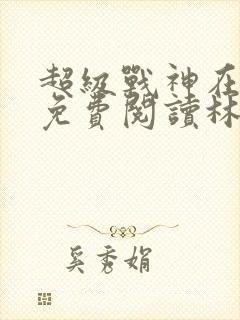 超級戰神在
免費閱讀林
奚秀娟